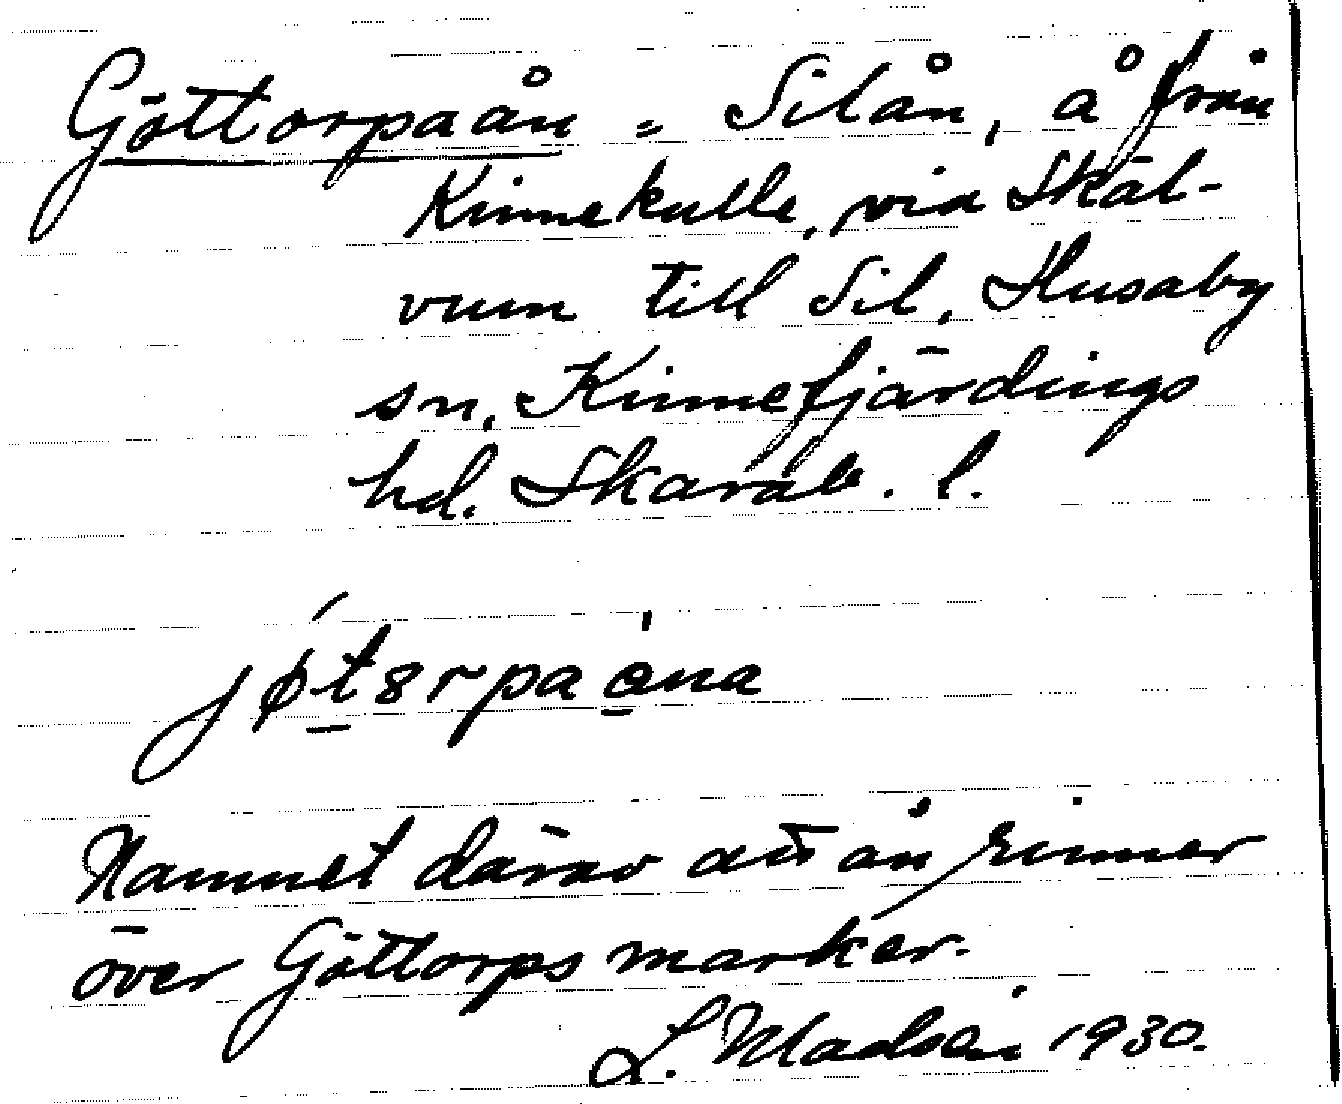 Göttorpaån = Silån, å från
Kinnekulle, via Skäl-
vum till Sil, Husaby
sn, Kinnefjärdings
hd. Skarab. l.
jøtörpaåna
Namnet därav att ån rinner
över Göttorps marker.
L. Madsén 1930.